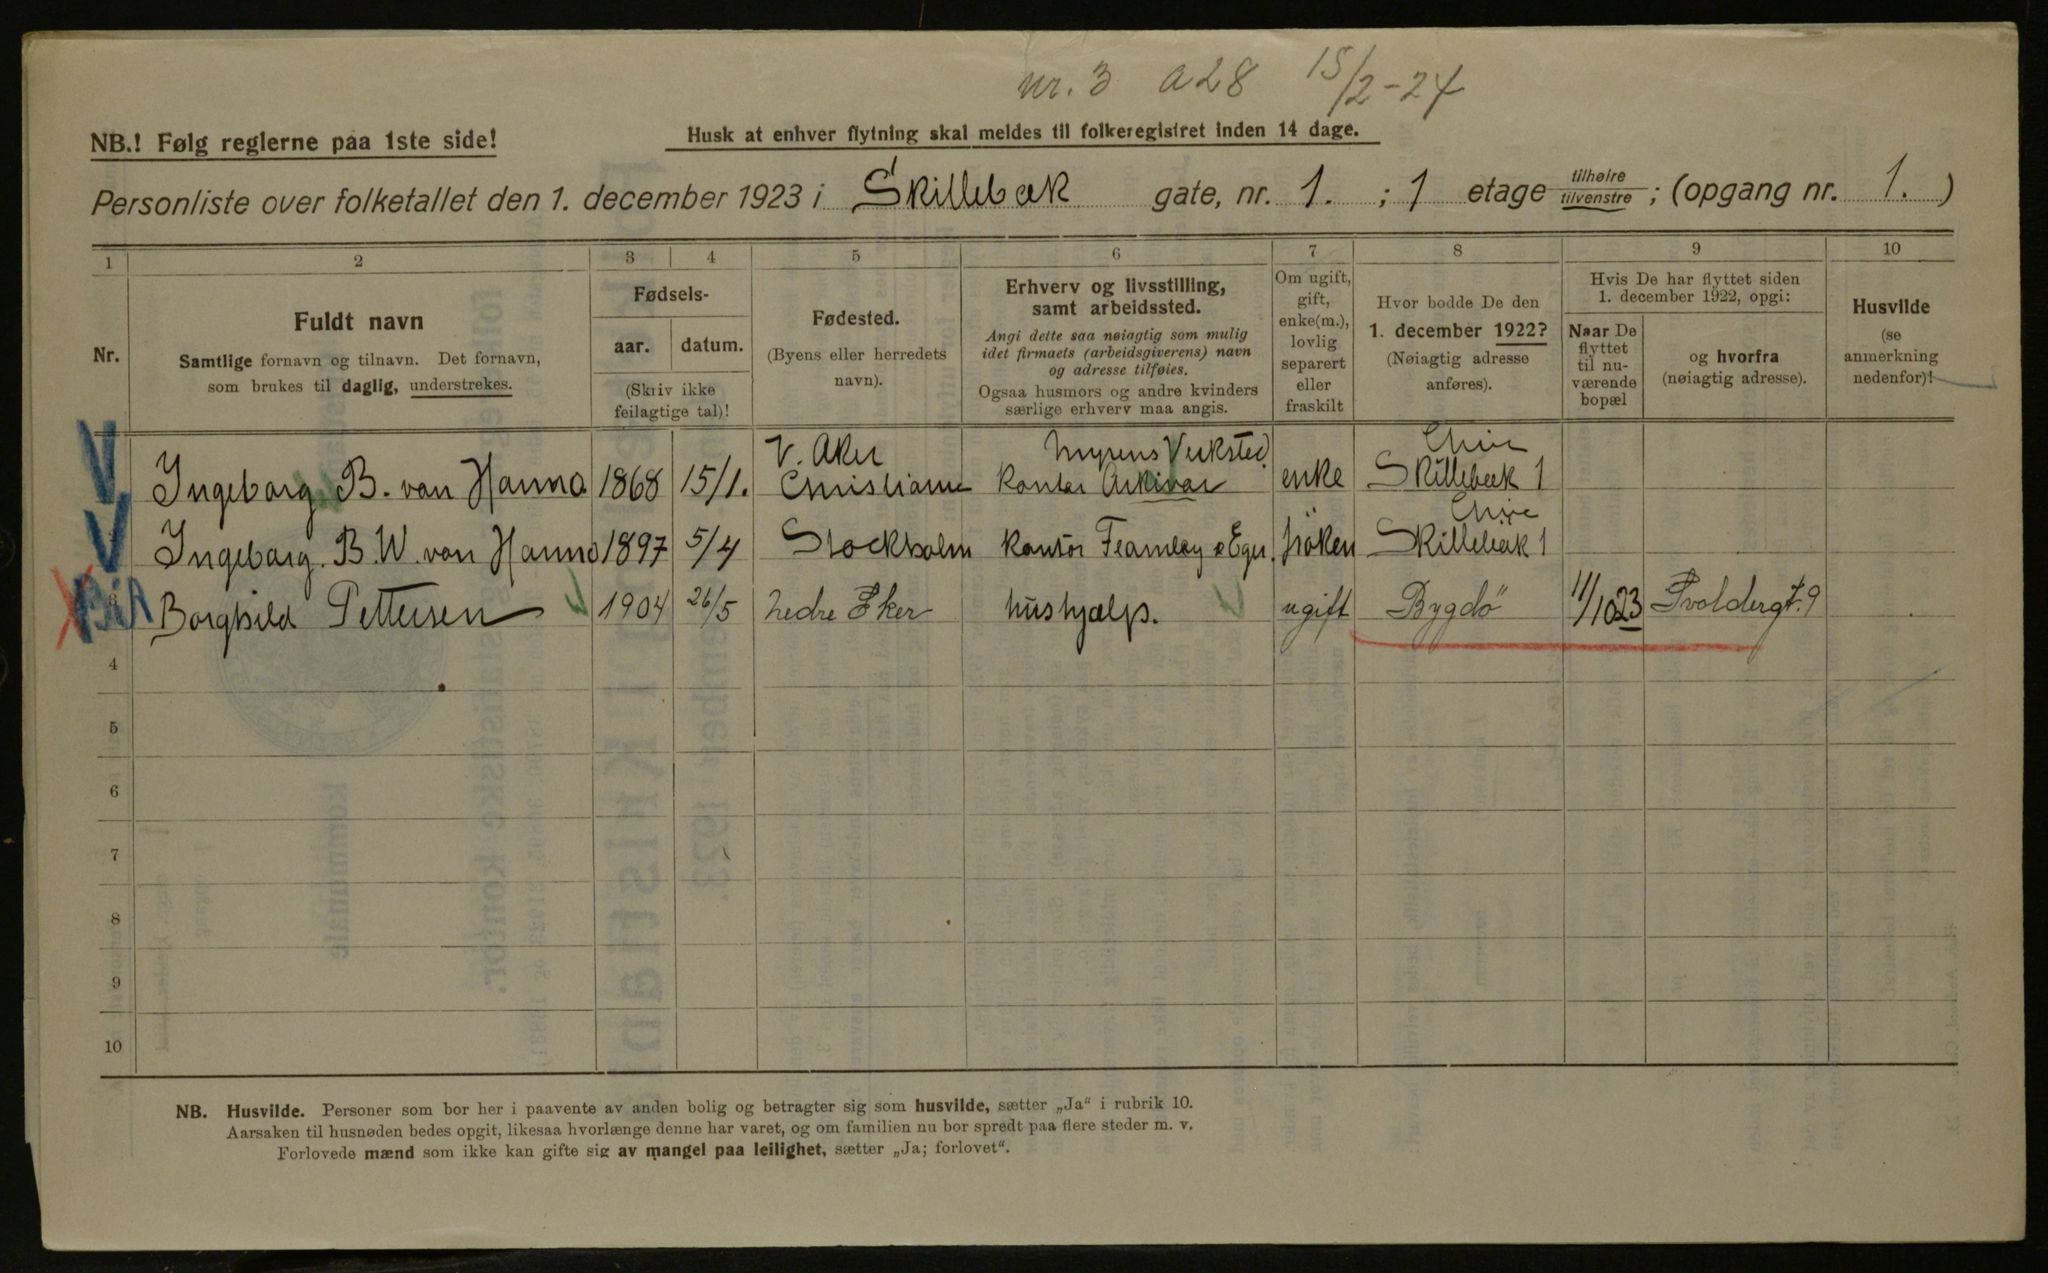 nr. 3 a28 15/2-24
NB.! Følg reglerne paa 1ste side!
Husk at enhver flytning skal meldes til folkeregistret inden 14 dage.
Personliste over folketallet den 1. december 1923 i Skillebæk gate, nr. 1. ; 1 etage tilhøire tilvenstre ; (opgang nr. 1. )
1 2 3 4 5 6 7 8 9 10
Nr.
Fuldt navn
Samtlige fornavn og tilnavn. Det fornavn,
som brukes til daglig, understrekes.
Fødsels-
aar. datum.
(Skriv ikke
feilagtige tal)!
Fødested.
(Byens eller herredets
navn).
Erhverv og livsstilling,
samt arbeidssted.
Angi dette saa nøiagtig som mulig
idet firmaets (arbeidsgiverens) navn
og adresse tilføies.
Ogsaa husmors og andre kvinders
særlige erhverv maa angis.
Om ugift,
gift,
enke(m.),
lovlig
separert
eller
fraskilt
Hvor bodde De den
1. december 1922?
(Nøiagtig adresse
anføres).
Hvis De har flyttet siden
1. december 1922, opgi:
Naar De
flyttet
til nu-
værende
bopæl
og hvorfra
(nøiagtig adresse).
Husvilde
(se
anmerkning
nedenfor)!
V. Aker Myrens Verksted
Ingeborg B. von Hanno 1868 15/1. Christiania kontor Arkivar enke Skillebæk 1
Ingeborg. B. W. von Hanno 1897 5/4 Stockholm kontor Fearnley &amp; Eger. fröken Skillebæk 1
3 Borghild Pettersen 1904 26/5 nedre Eker hushjælp. ugift Bygdö 11/10 23 Svoldergt. 9
4
5
6
7
8
9
10
NB. Husvilde. Personer som bor her i paavente av anden bolig og betragter sig som husvilde, sætter „Ja“ i rubrik 10.
Aarsaken til husnøden bedes opgit, likesaa hvorlænge denne har varet, og om familien nu bor spredt paa flere steder m. v.
Forlovede mænd som ikke kan gifte sig av mangel paa leilighet, sætter „Ja; forlovet“.